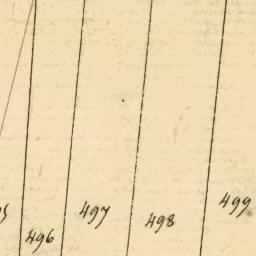 496
497
498
499